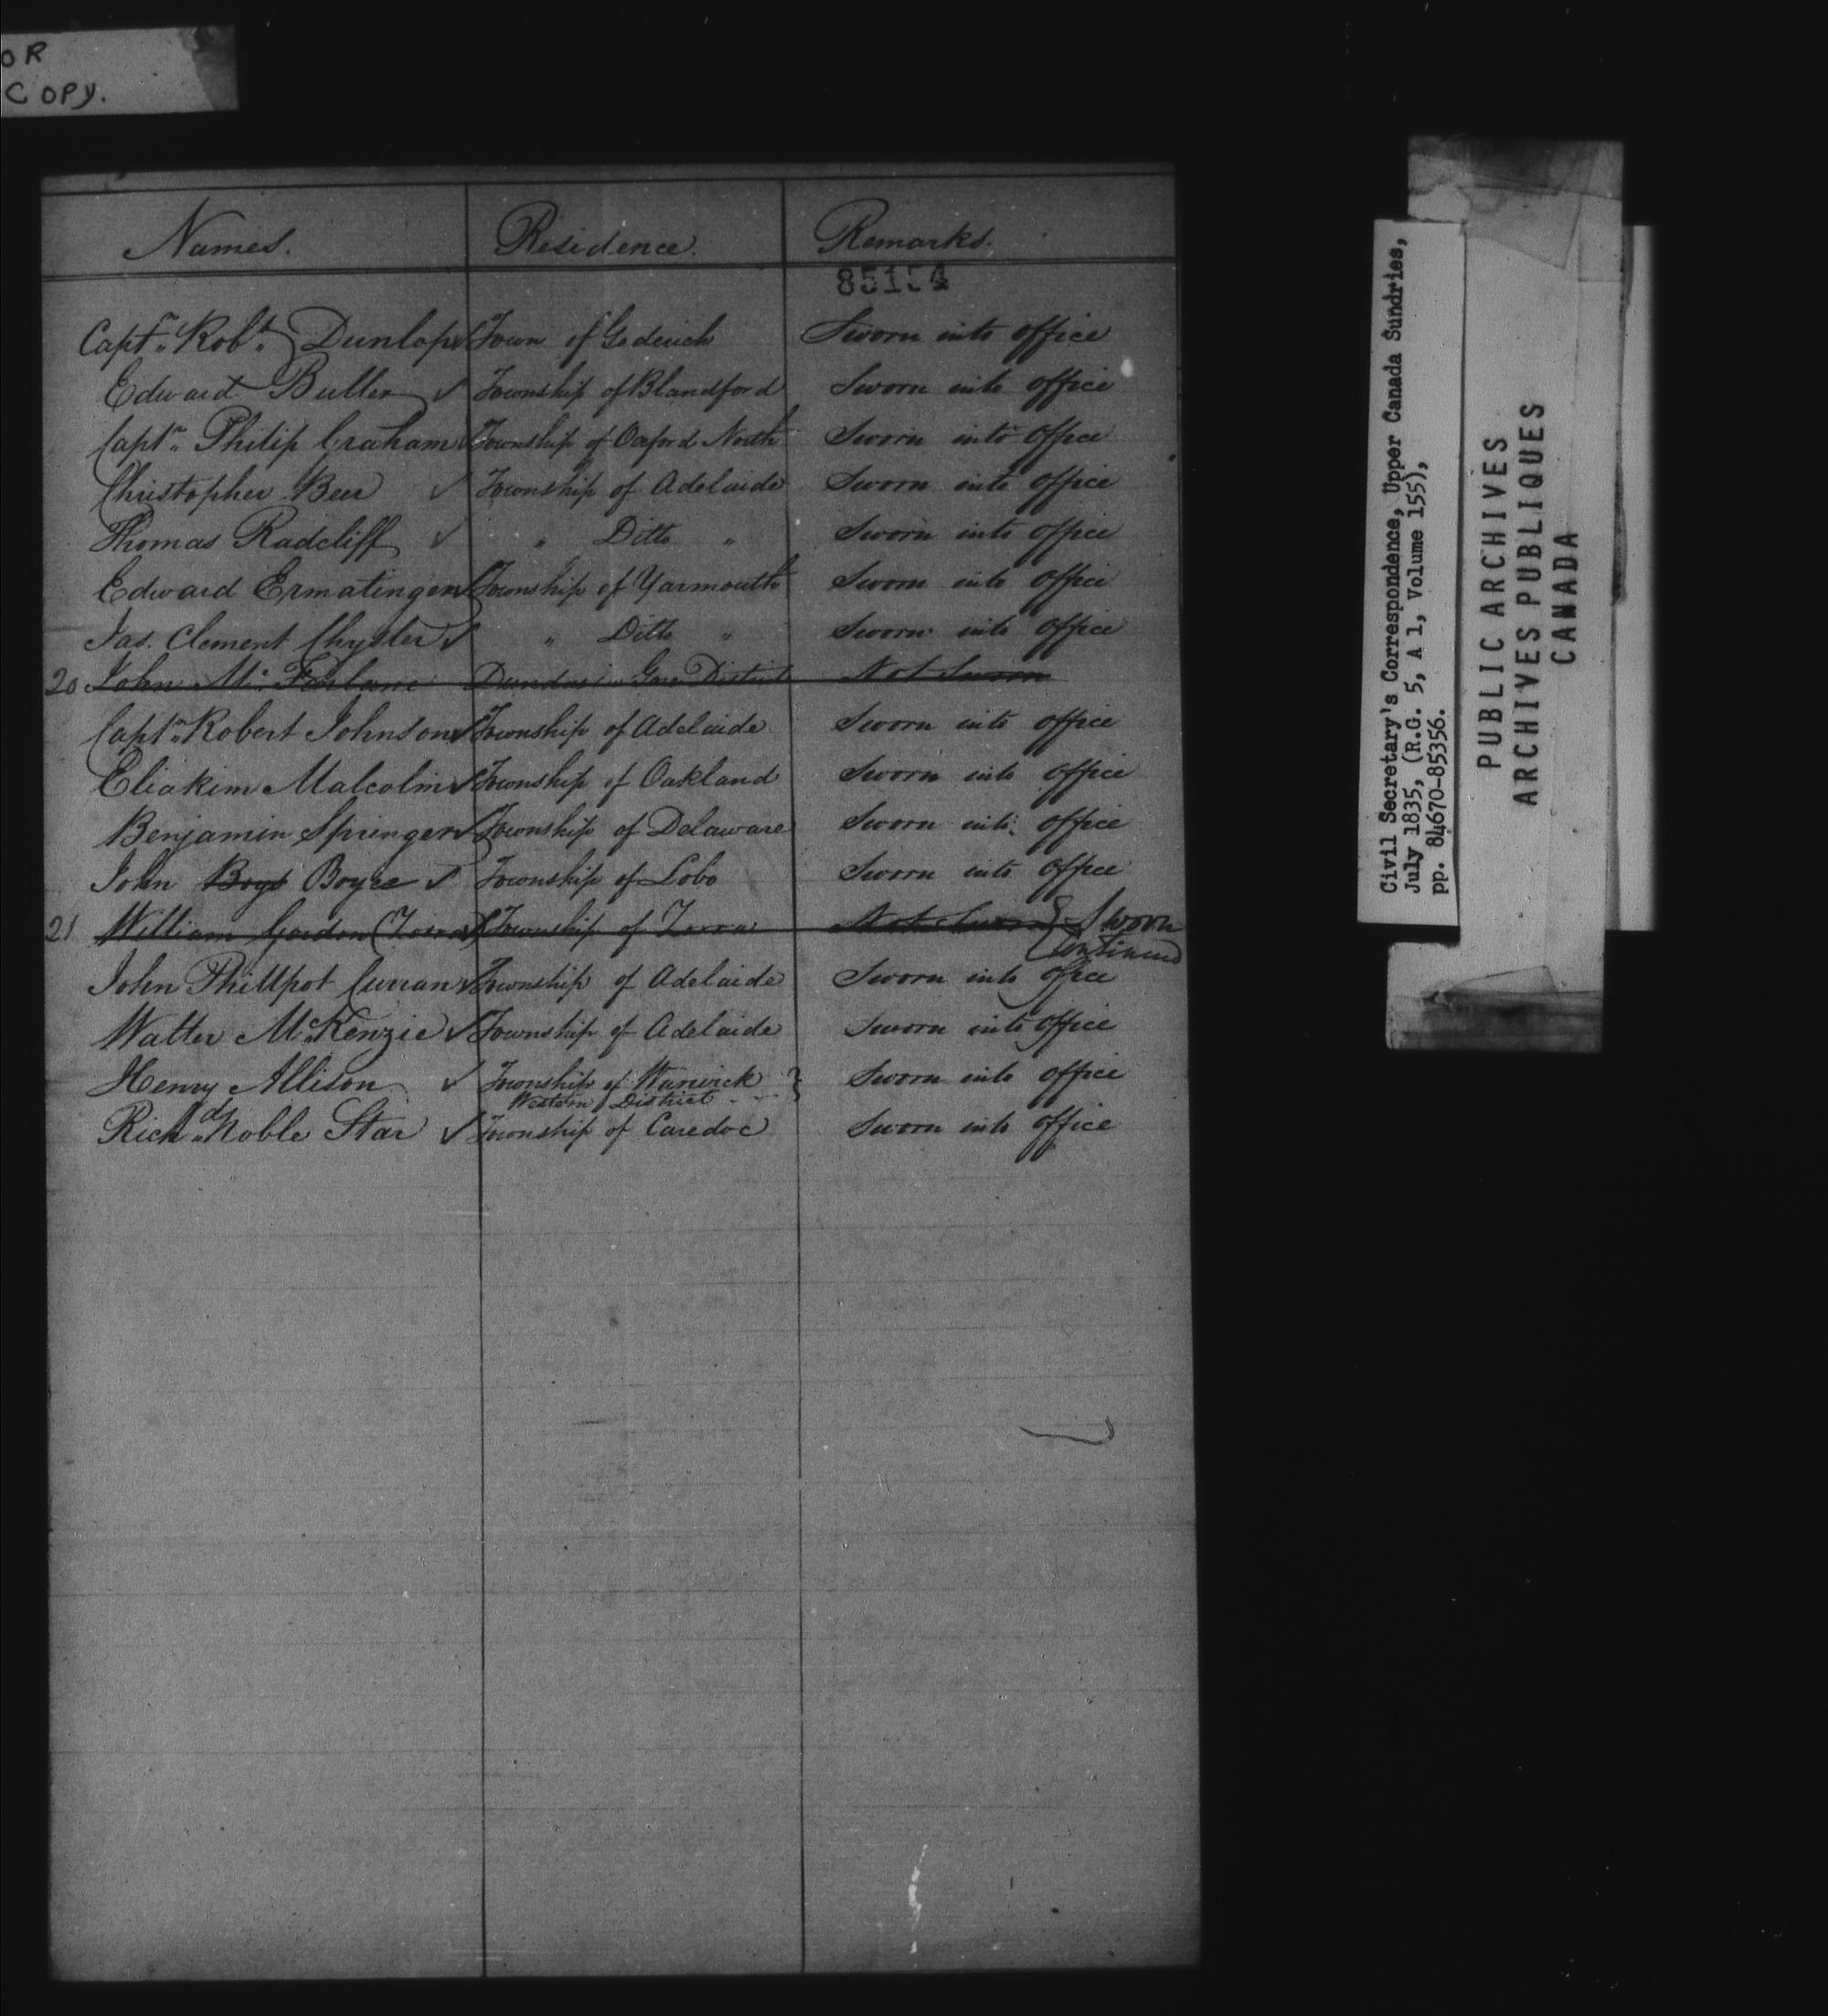 OR
COPY.
Names. Residence. Remarks.
85154
Captn. Robt. Dunlop ✓ Town of Goderich Sworn into office
Edward Buller ✓ Township of Blandford Sworn into office
Captn. Philip Graham ✓ Township of Oxford North Sworn into office
Christopher Beer ✓ Township of Adelaide Sworn into office
Thomas Radcliff ✓ " Ditto " Sworn into office
Edward Ermatinger ✓ Township of Yarmouth Sworn into office
Jas. Clement Chysler ✓ " Ditto " Sworn into office
20 John Mc. Farlane Dundas Gore District Not Sworn
Captn. Robert Johnson ✓ Township of Adelaide Sworn into office
Eliakim Malcolm ✓ Township of Oakland Sworn into office
Benjamin Springer ✓ Township of Delaware Sworn into office
John Boys Boyce ✓ Township of Lobo Sworn into office
21 William Gordon (Zorra) Township of Zorra Not Sworn Sworn
Continued
John Phillpot Curran ✓ Township of Adelaide Sworn into office
Walter McKenzie ✓ Township of Adelaide Sworn into office
Henry Allison ✓ Township of Warwick } Sworn into office
Western District
Richd. Noble Star ✓ Township of Caredoc Sworn into office
Civil Secretary's Correspondence, Upper Canada Sundries,
July 1835, (R.G. 5, A 1, Volume 155),
pp. 84670-85356.
PUBLIC ARCHIVES
ARCHIVES PUBLIQUES
CANADA